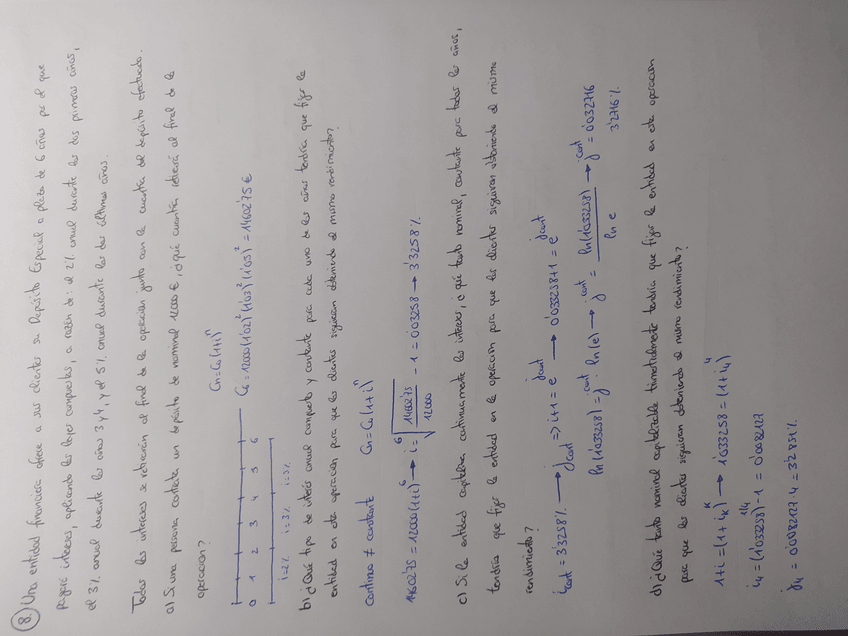 8. Una entidad financiera ofrece a sus clientes su Depósito Especial a plazo de 6 años por el que
pagará intereses, aplicando las leyes compuestas, a razón de: el 2% anual durante los dos primeros años,
el 3% anual durante los años 3 y 4, y el 5% anual durante los dos últimos años.
Todos los intereses se retirarán al final de la operación junto con la cuantía del depósito efectuado.
a) Si una persona contrata un depósito de nominal 12000 €, ¿qué cuantía retirará al final de la
operación?
Cn = C0(1+i)^n
0 1 2 3 4 5 6
i=2% i=3% i=5%
C6 = 12000(1'02)^2(1'03)^2(1'05)^2 = 14602'75 €
b) ¿Qué tipo de interés anual compuesto y constante para cada uno de los años tendría que fijar la
entidad en esta operación para que los clientes siguieran obteniendo el mismo rendimiento?
continuo ≠ constante Cn = C0(1+i)^n
14602'75 = 12000(1+i)^6 → i = ⁶√(14602'75/12000) - 1 = 0'03258 → 3'3258%
c) Si la entidad capitaliza continuamente los intereses, ¿qué tanto nominal, constante para todos los años,
tendría que fijar la entidad en la operación para que los clientes siguieran obteniendo el mismo
rendimiento?
i cont = 3'3258% → j cont => i+1 = e^j cont → 0'033258+1 = e^j cont
ln(1'033258) = j cont · ln(e) → j cont = ln(1'033258)/ln e → j cont = 0'032716
3'2716%
d) ¿Qué tanto nominal capitalizable trimestralmente tendría que fijar la entidad en esta operación
para que los clientes siguieran obteniendo el mismo rendimiento?
1+i = (1+ik)^k → 1'033258 = (1+i4)^4
i4 = (1'033258)^1/4 - 1 = 0'0082127
j4 = 0'0082127·4 = 3'2851%